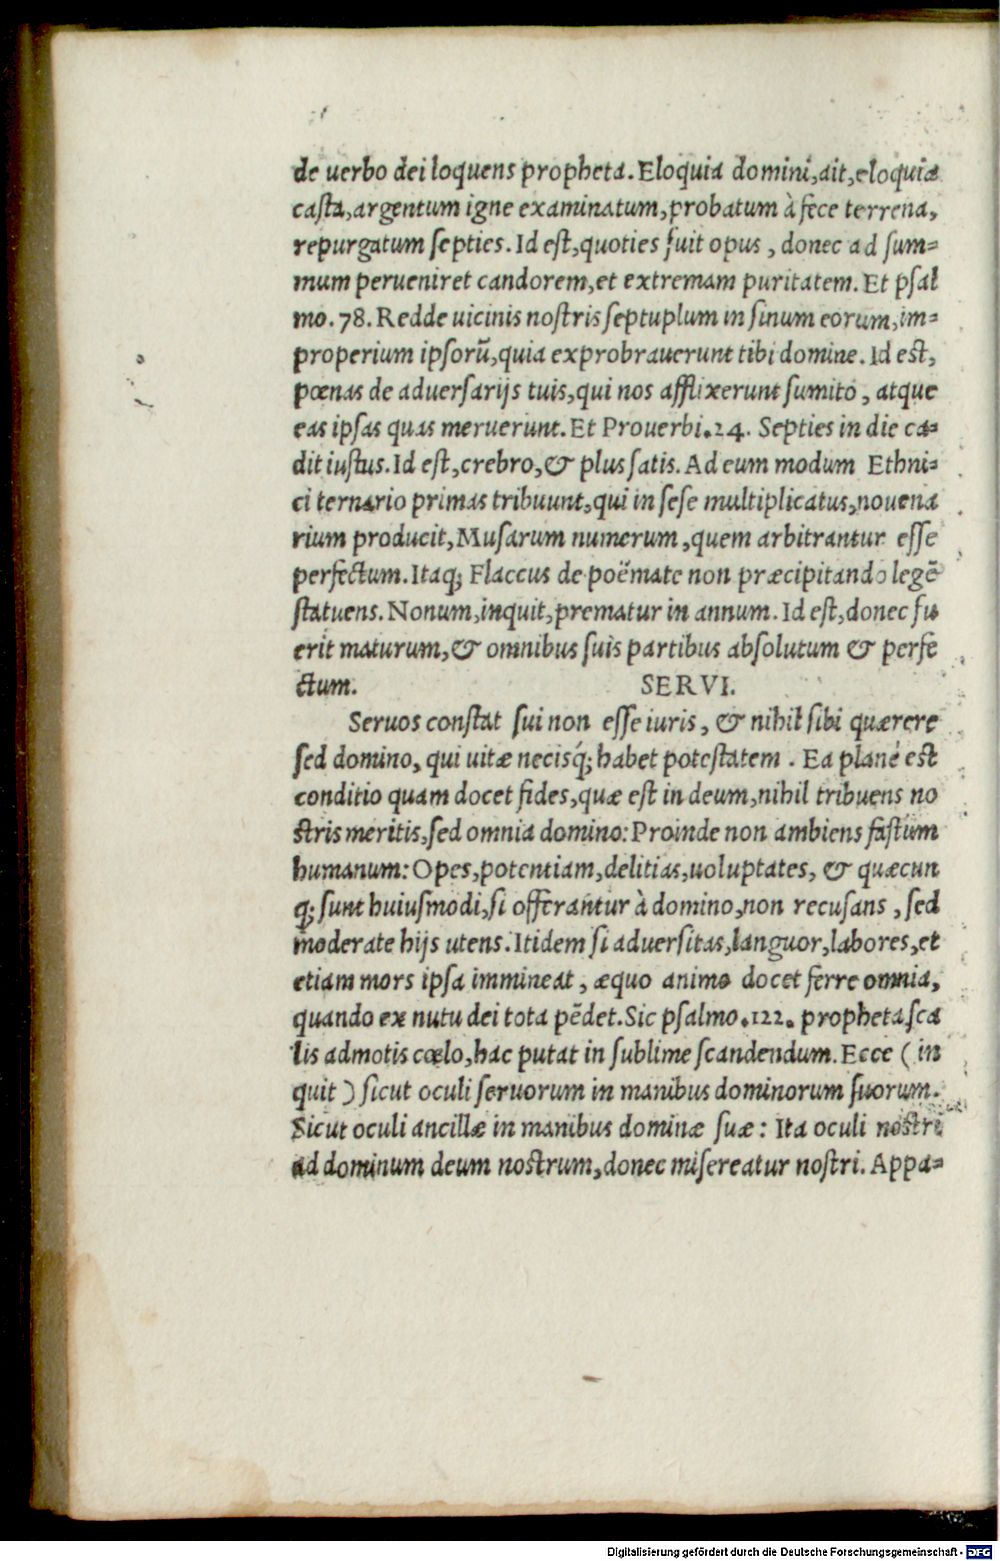 de uerbo dei loquens propheta. Eloquia domini, ait, eloquia
casta, argentum igne examinatum, probatum à fece terrena,
repurgatum septies. Id est, quoties fuit opus, donec ad sum=
mum perueniret candorem, et extremam puritatem. Et psal
mo. 78. Redde uicinis nostris septuplum in sinum eorum, im=
properium ipsorũ, quia exprobrauerunt tibi domine. Id est,
pœnas de aduersarijs tuis, qui nos afflixerunt sumito, atque
eas ipsas quas meruerunt. Et Prouerbi. 24. Septies in die ca=
dit iustus. Id est, crebro, & plus satis. Ad eum modum Ethni=
ci ternario primas tribuunt, qui in sese multiplicatus, nouena
rium producit, Musarum numerum, quem arbitrantur esse
perfectum. Itaq; Flaccus de poëmate non præcipitando legẽ
statuens. Nonum, inquit, prematur in annum. Id est, donec fu
erit maturum, & omnibus suis partibus absolutum & perfe
ctum. SERVI.
Seruos constat sui non esse iuris, & nihil sibi quærere
sed domino, qui uitæ necisq́; habet potestatem. Ea planè est
conditio quam docet fides, quæ est in deum, nihil tribuens no
stris meritis, sed omnia domino: Proinde non ambiens fastum
humanum: Opes, potentiam, delitias, uoluptates, & quæcun
q; sunt huiusmodi, si offerantur à domino, non recusans, sed
moderate hijs utens. Itidem si aduersitas, languor, labores, et
etiam mors ipsa immineat, æquo animo docet ferre omnia,
quando ex nutu dei tota pẽdet. Sic psalmo. 122. propheta sca
lis admotis cœlo, hac putat in sublime scandendum. Ecce (in
quit) sicut oculi seruorum in manibus dominorum suorum.
Sicut oculi ancillæ in manibus dominæ suæ: Ita oculi nostri
ad dominum deum nostrum, donec misereatur nostri. Appa=
Digitalisierung gefördert durch die Deutsche Forschungsgemeinschaft - DFG